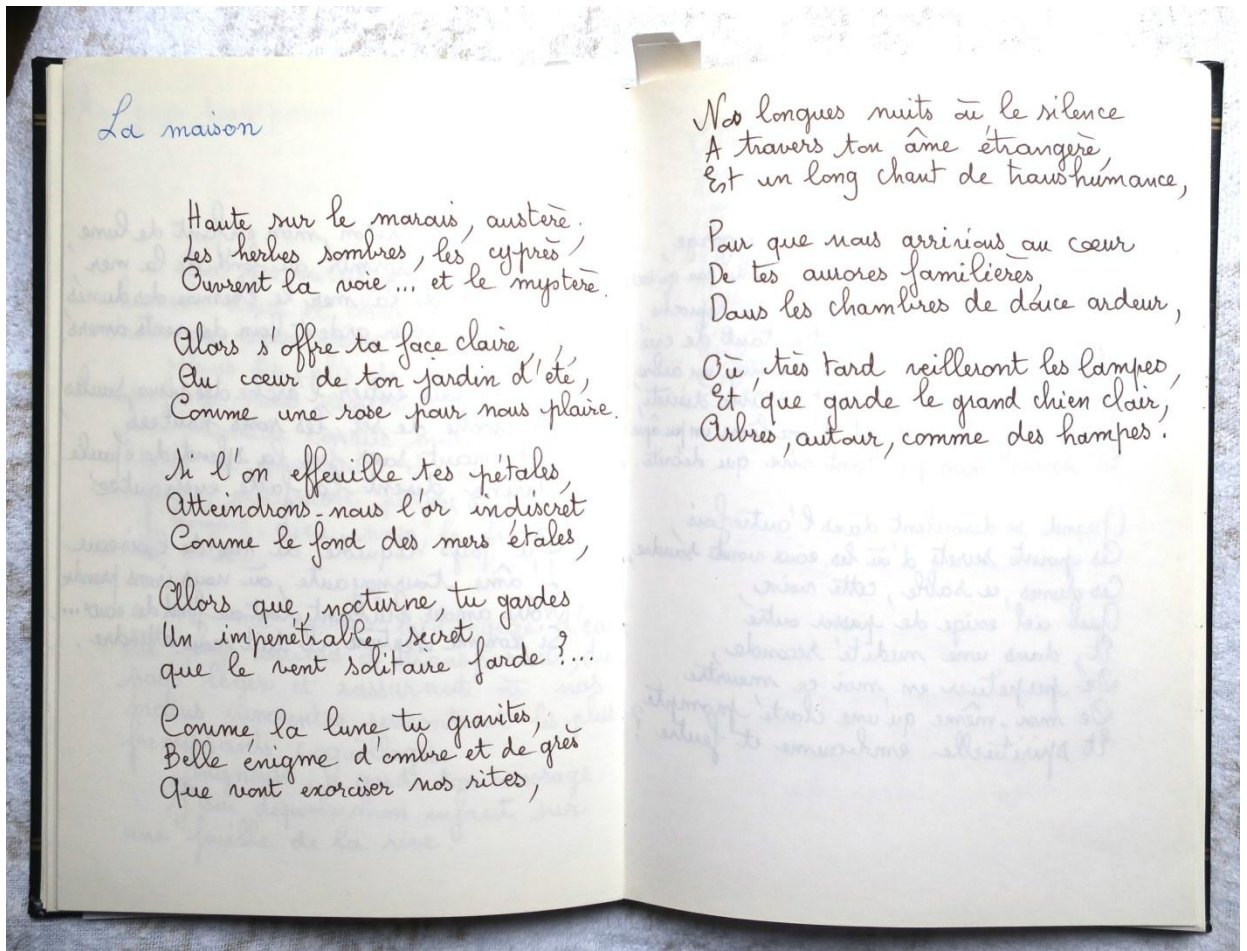 La maison
Haute sur le marais, austère.
Les herbes sombres, les cyprès
Ouvrent la voie... et le mystère.
Alors s'offre ta face claire,
Au cœur de ton jardin d'été,
Comme une rose pour nous plaire.
Si l'on effeuille tes pétales,
Atteindrons-nous l'or indiscret
Comme le fond des mers étales,
Alors que, nocturne, tu gardes
Un impénétrable secret,
que le vent solitaire farde ?...
Comme la lune tu gravites,
Belle énigme d'ombre et de grès
Que vont exorciser nos rites,
Nos longues nuits où le silence
A travers ton âme étrangère,
Est un long chant de transhumance,
Pour que nous arrivions au cœur
De tes aurores familières,
Dans les chambres de douce ardeur,
Où, très tard veilleront les lampes,
Et que garde le grand chien clair,
Arbres, autour, comme des hampes.